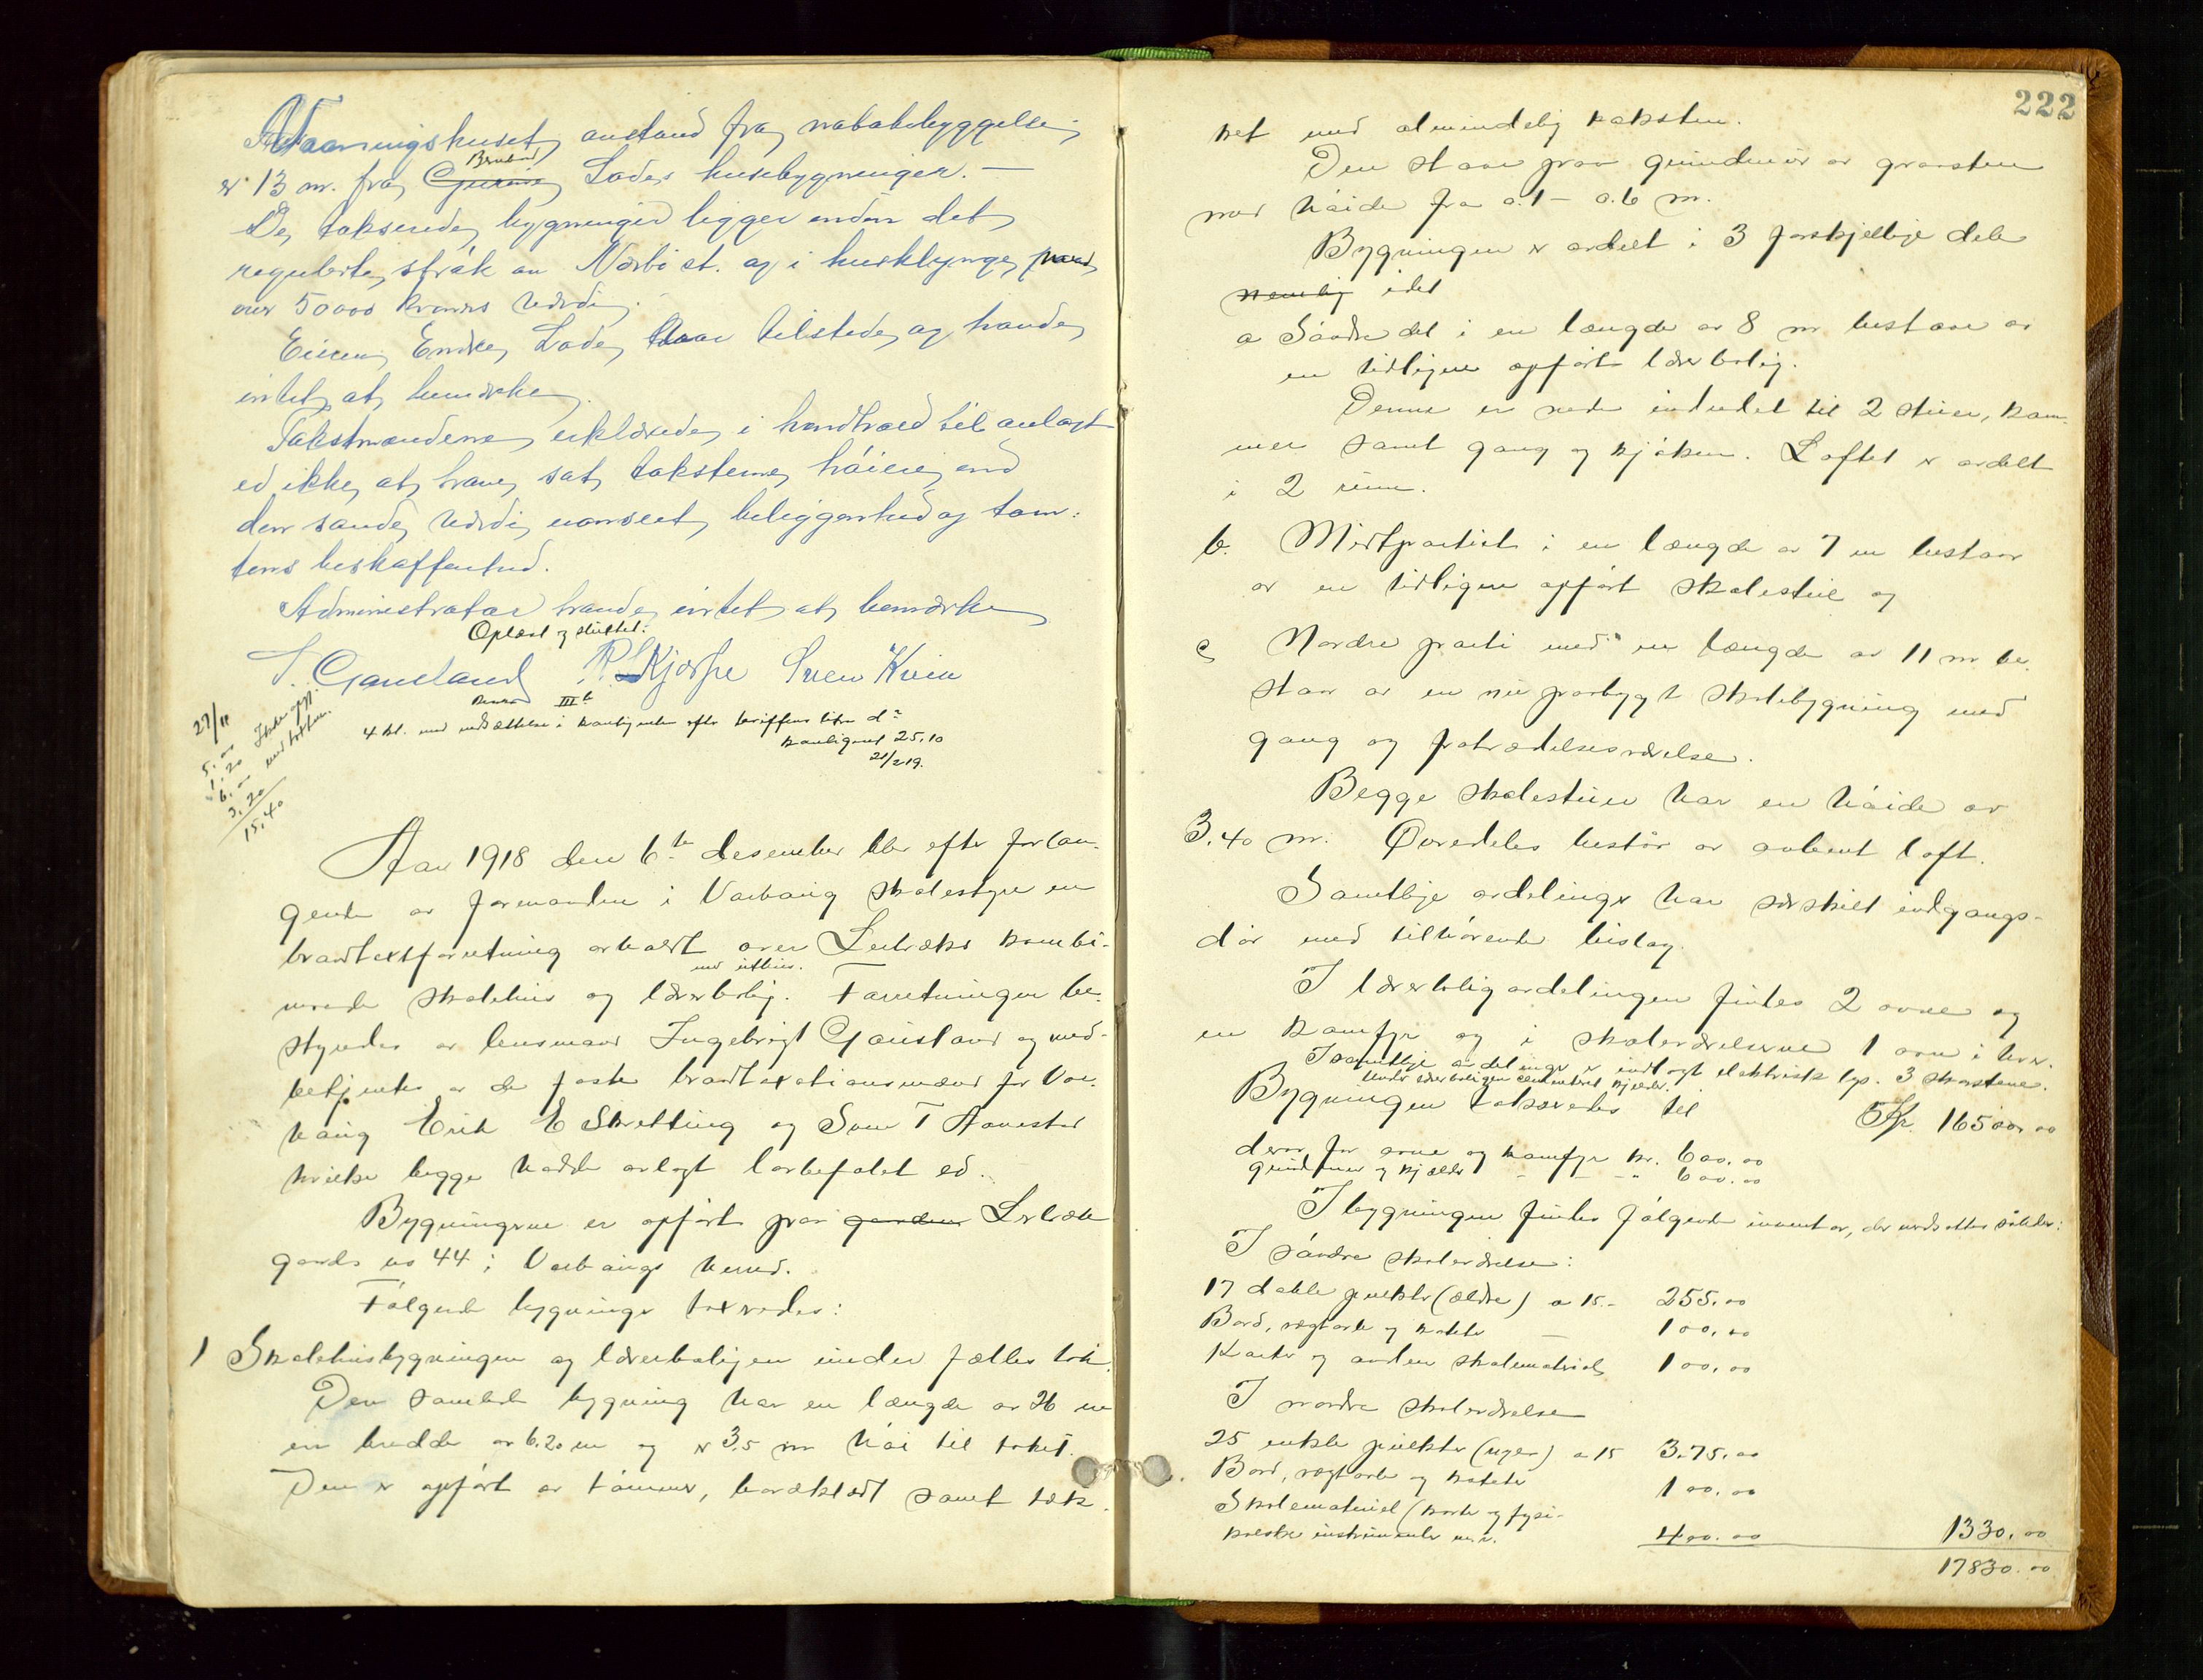 Vaaningshuset, avstand fra, nabobebyggelse,
er 13 m. fra, Gurine Bruland Lode, husebygninger. —
De, takserede, bygninger ligger inden det,
regulerte, strøk av Nærbø st. og i husklynge, paa,
over 50000 kroners værdi.
Eieren, Endre, Lode, var tilstede, og havde,
intet, at, bemærke,
Takstmændene, erklærede, i henhold til avlagt
ed ikke, at, have, sat, taksterne, høiere, end
den sande, værdi, uanseet, beliggenhed og tom-
tens beskaffenhed.
Administrator havde, intet, at, bemærke,
Oplæst og sluttet:
I. Gausland R. L Kjosse Sven Kvien
III b
4 kl. med nedsættelse i kontingenten efter tariffens litra d
kontingent 25.10
21/2 19.
27/11
5.00
1.20
6.00
3.20
15.40
Aar 1918 den 6te desember blev efter forlan-
gende av formanden i Varhaug skolestyre en
brandtakstforretning avholdt over Lerbræks kombi-
nerede skolehus og lærerbolig. med uthus. Forretningen be-
styredes av lensmand Ingebrigt Gausland og med-
betjentes av de faste brandtaxationsmænd for Var-
haug Erik E Skretting og Sven T Aarestad
hvilke begge havde avlagt lovbefalet ed.
Bygningerne er opført paa gaarden Lerbræk
gards no 44 i Varhaugs herred.
Følgende bygninger taxeredes:
1 Skolehusbygningen og lærerboligen under fælles tak.
Den samlede bygning har en længde av 26 m
en bredde av 6.20 m og er 3.5 m høi til taket.
Den er opført av tømmer, bordklædt samt tæk-
222
ket med almindelig taksten.
Den staar paa grundmur av graasten
med høide fra 0.1 – 0.6 m.
Bygningen er avdelt i 3 forskjellige dele
nemlig idet
a Søndre del i en længde av 8 m bestaar av
en tidligere opført lærerbolig.
Denne er nede indredet til 2 stuer, kam-
mer samt gang og kjøken. Loftet er avdelt
i 2 rum.
b. Midtpartiet i en længde av 7 m bestaar
av en tidligere opført skolestue og
c Nordre parti med en længde av 11 m be-
staar av en ny paabygt skolebygning med
gang og fratrædelsesværelse.
Begge skolestuer har en høide av
3.40 m. Øverdeles består av aabent loft.
Samtlige avdelinger har særskilt indgangs-
dør med tilhørende bislag.
I lærerboligavdelingen findes 2 ovne og
en komfyr og i skoleværelserne 1 ovn i hver.
I samtlige avdelinger er indlagt elektrisk lys. 3 skorstene.
Under lærerboligen cementeret kjelder.
Bygningen takseredes til Kr. 16500.00
derav for ovne og komfyr kr. 600.00
grundmur og kjælder — — „ 600.00
I bygningen findes følgende inventar, der værdsættes således:
I søndre skoleværelse:
17 doble pulter (ældre) a 15.- 255.00
Bord, vægtavle og kateter — 100.00
Karter og anden skolemateriel 100.00
I nordre skoleværelse
25 enkle pulter (nyere) a 15 3.75.00
Bord, vægtavle og kateter 100.00
Skolemateriel (karter og fysi-
kalske instrumenter m.v. 400.00 1330.00
17830.00